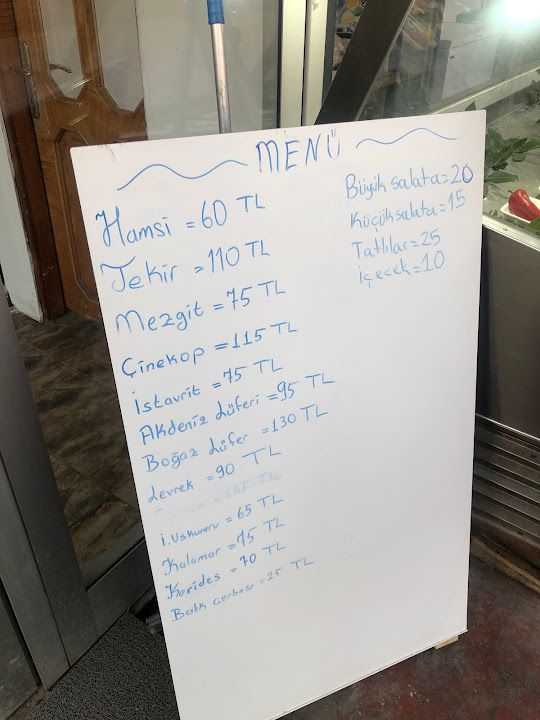 MENÜ
Hamsi = 60 TL
Tekir = 110 TL
Mezgit = 75 TL
Çinekop = 115 TL
İstavrit = 75 TL
Akdeniz Lüferi = 95 TL
Boğaz Lüfer = 130 TL
Levrek = 90 TL
İ. Uskumru = 65 TL
Kalamar = 75 TL
Karides = 70 TL
Balık Çorbası = 25 TL
Büyük salata = 20
Küçük salata = 15
Tatlılar = 25
İçecek = 10